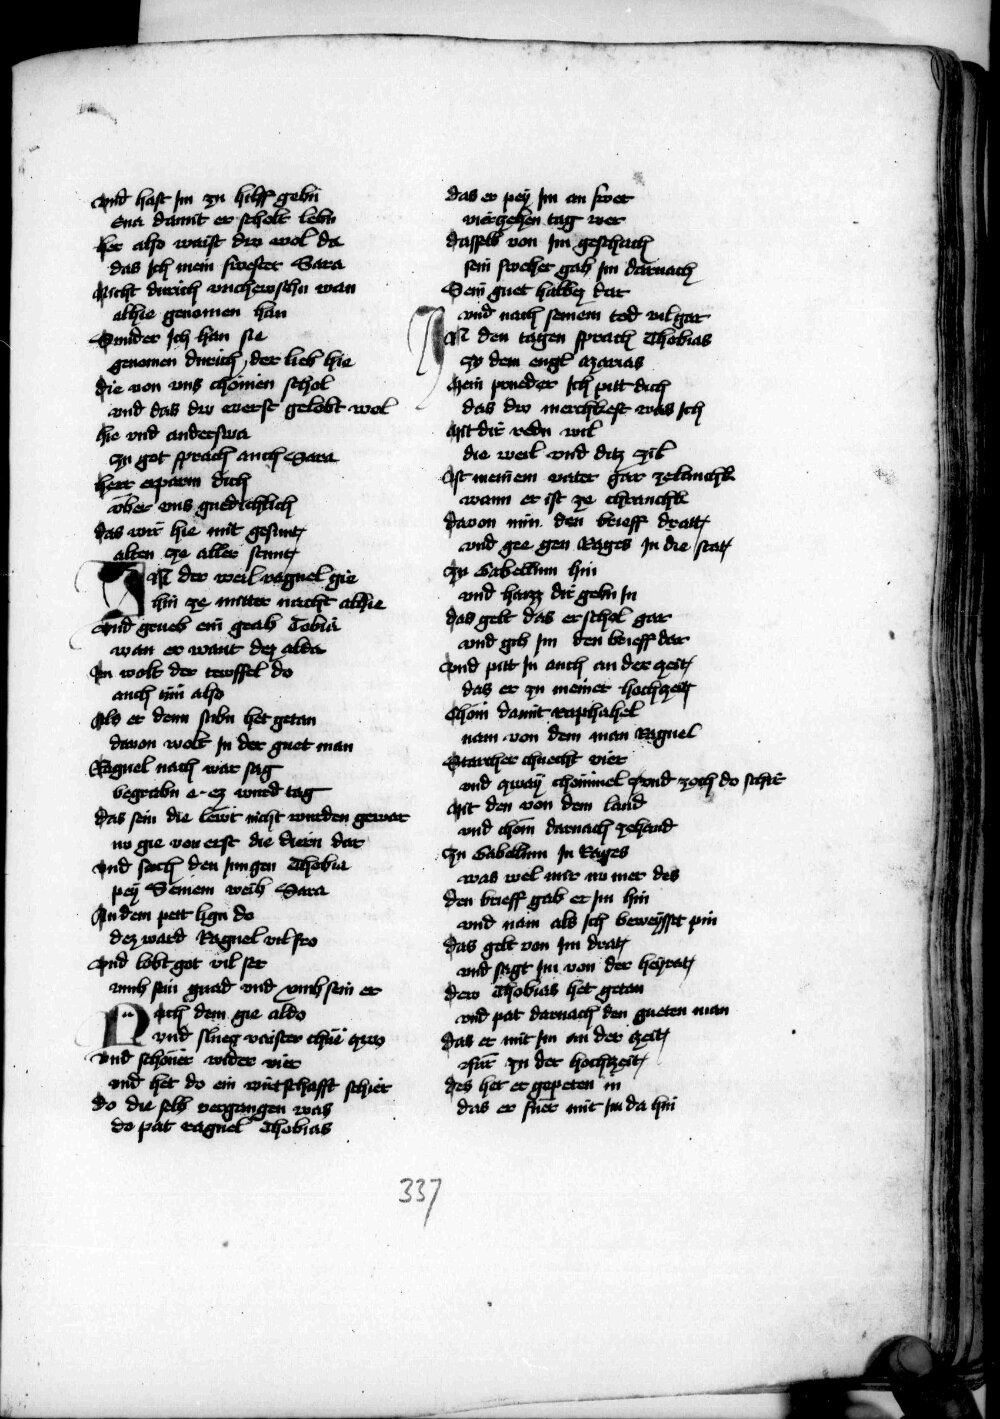 vnd hast Im zu hilff gebn
Eua damit er scholt lebn
her also waist dw wol da
das Ich mein swester Sara
Nicht durich vnchewschn wan
alhie genomen han
Sunder Ich han sie
genomen durich der lieb hie
die von vns chomen schol
vnd das dw werst gelobt wol
hie vnd anderswa
Zu got sprach auch Sara
herr erparm dich
vber vns gnedichlich
das wir hie mit gesunt
alten ze aller stunt
IN der weil raguel gie
hin ze mitter nacht alhie
vnd grueb ein grab Tobia
wan er want dez alda
In wolt der tewffel do
auch tun also
Als er denn sibn het getan
dauon wolt In der guet man
Raguel nach war sag
begrabn e ez wurd tag
das sein die lewt nicht wurden gewar
nu gie von erst die diern dar
vnd sach den Jungen Thobia
pey Seinem weib Sara
An dem pett lign do
dez ward Raguel vil fro
vnd lobt got vil ser
vmb sein gnad vnd vmb sein er
Nach dem gie aldo
vnd slueg vaister chue zwo
vnd schoner wider vier
vnd het do ein wirtschafft schier
do die selb vergangen was
do pat raguel Thobias
das er pey Im an swer
vierzehen tag wer
dasselb von Im geschach
sein sweher gab Im darnach
Sein guet halbez dar
vnd nach seinem tod vil gar
IN den tagen sprach Thobias
Zu dem engl Azarias
Mein prueder Ich pitt dich
das dw merchkest was Ich
Mit dir redn wil
die weil vnd ditz zil
Ist meinem vater gar zelanckh
wann er ist ze chranckh
dauon nim den brieff dratt
vnd gee gen Rages In die stat
Zu Gabellum hin
vnd haizz dir gebn In
das gelt das er schol gar
vnd gib Im den brieff dar
vnd pitt In auch an der zeit
das er zu meiner hochzeit
Chom damit raphahel
nam von dem man Raguel
Starcher chnecht vier
vnd zway chommel vnd zoch do schir
Mit den von dem land
vnd chom darnach zehand
Zu Gabellum In Rages
was wel mir nu mer des
den brieff gab er Im hin
vnd nam als Ich beweyset pin
das gelt von Im drat
vnd sagt Im von der heyrat
dew Thobias het getan
vnd pat darnach den gueten man
das er mit Im an der zeit
fur zu der hochzeit
des het er gepeten in
das er fuer mit Im da hin
337